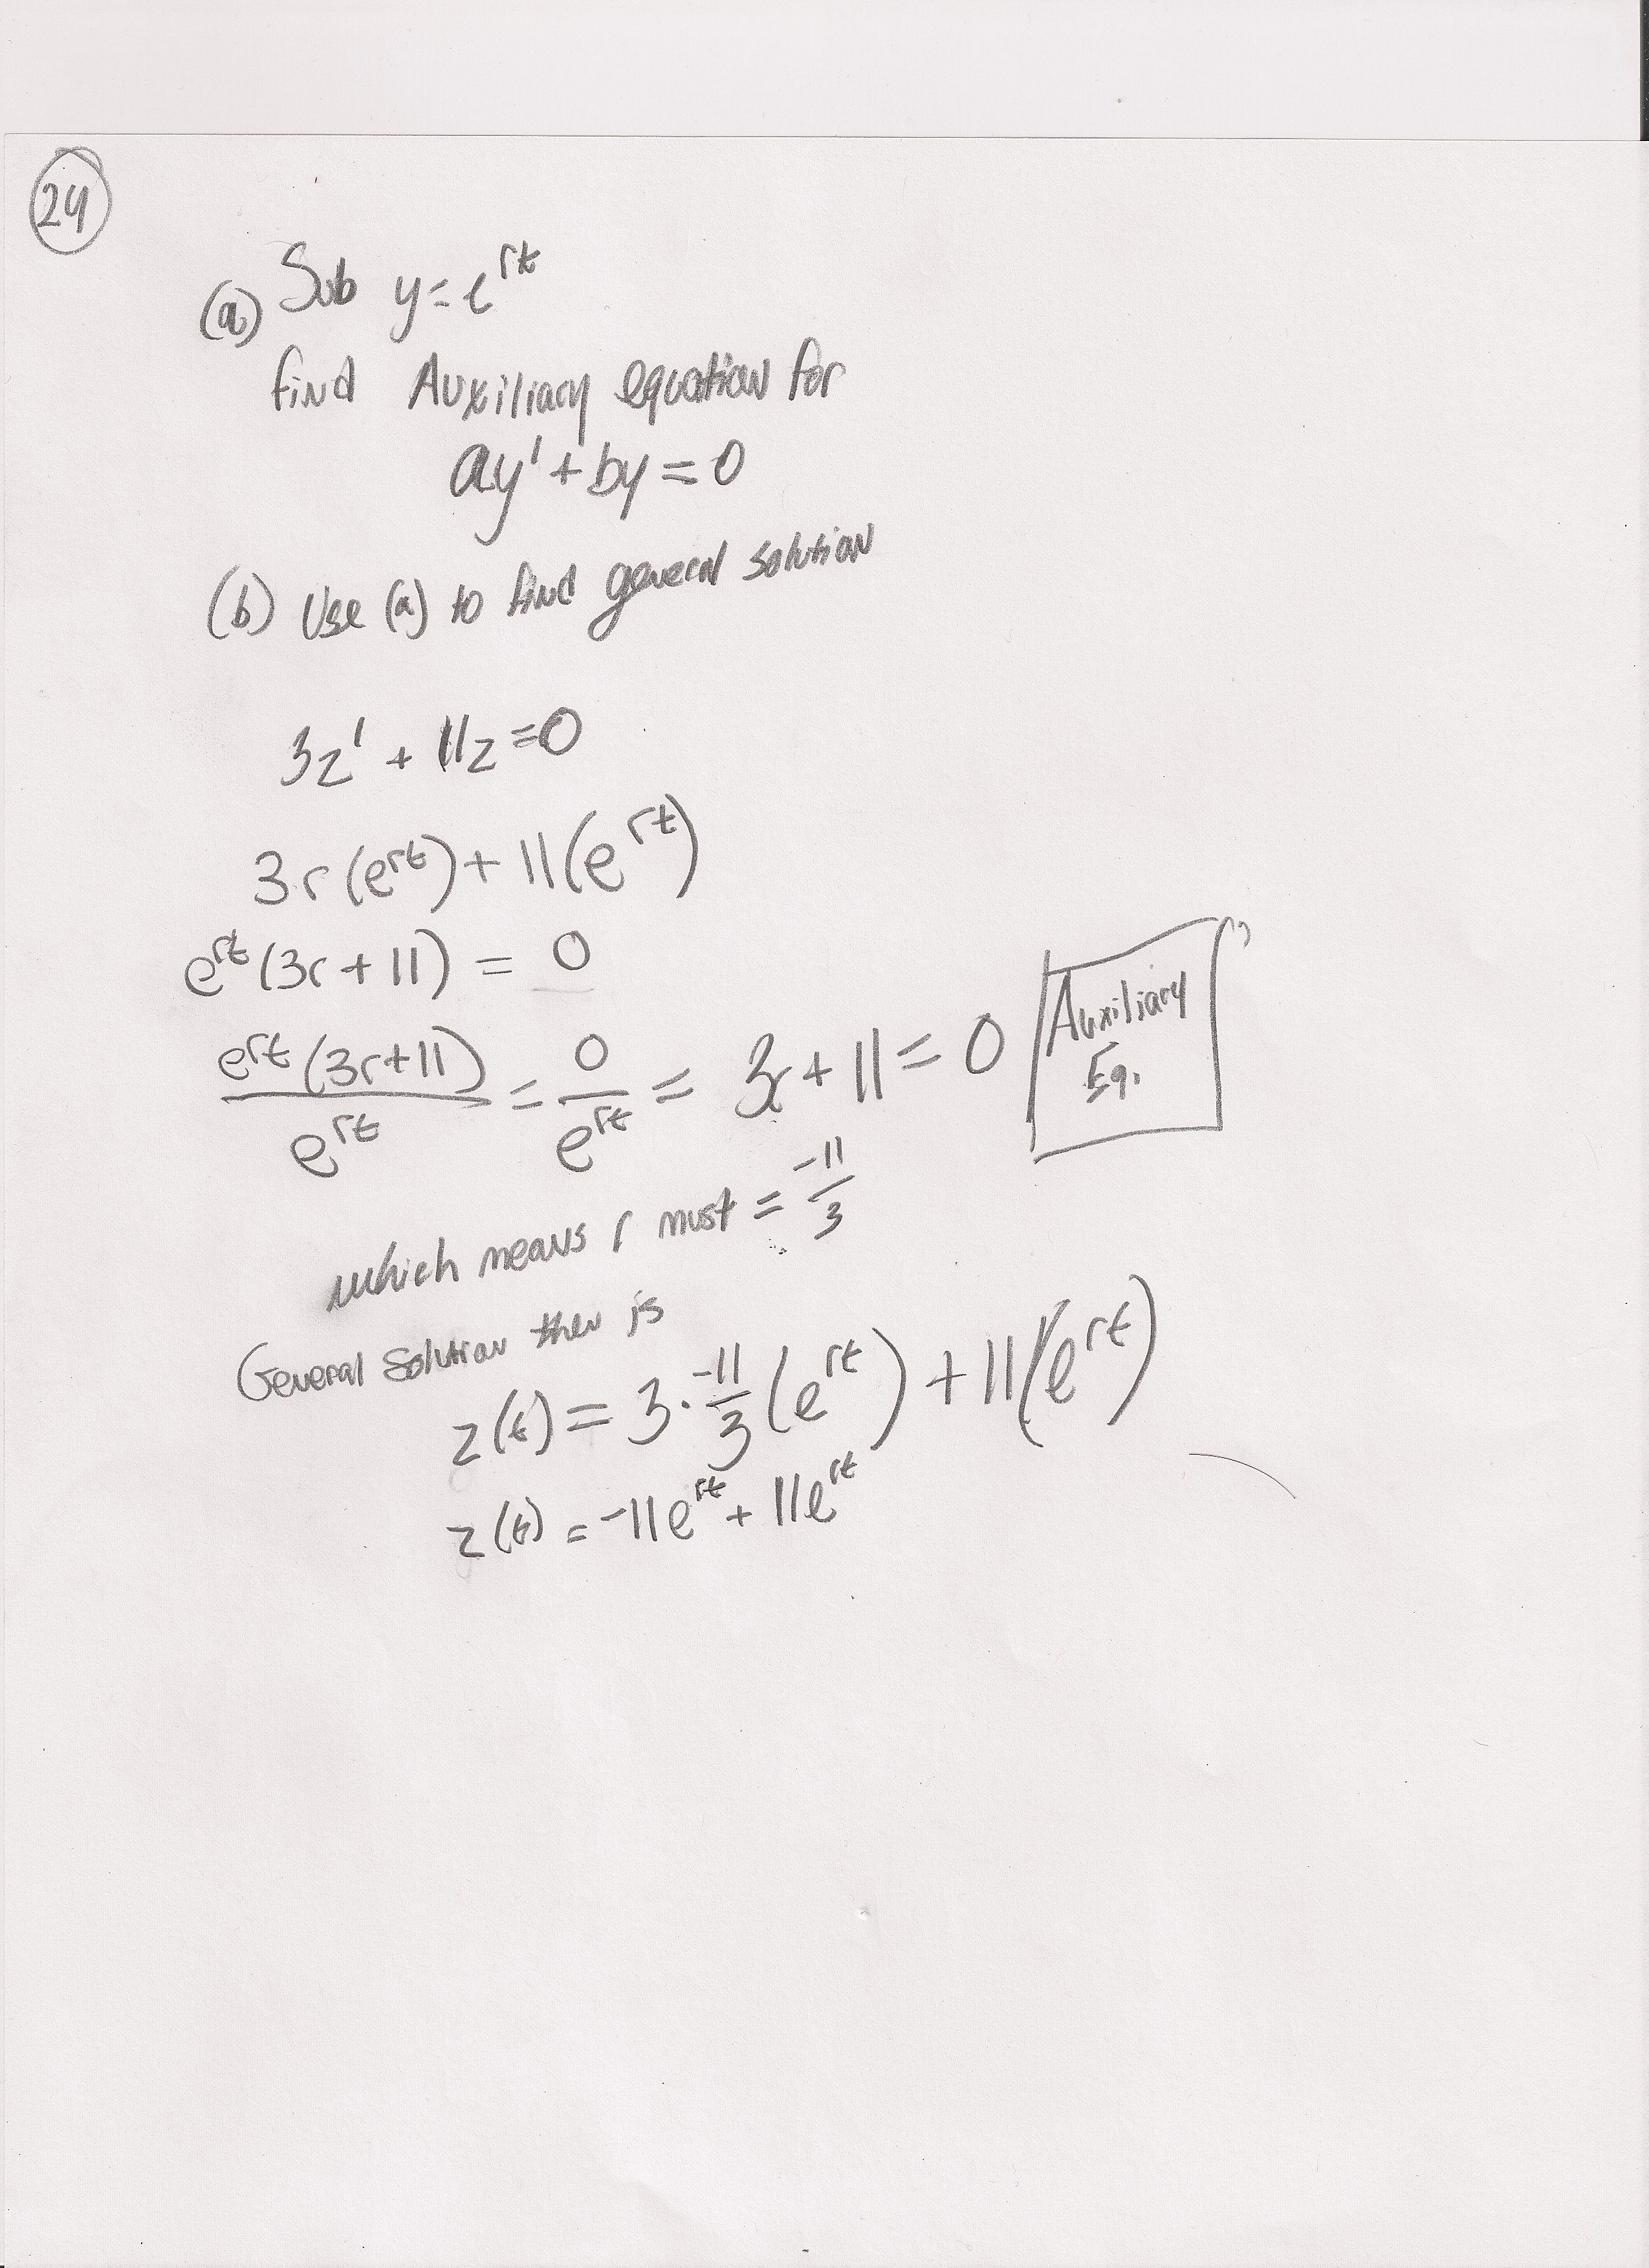 24
(a) Sub y=e^rt
find Auxiliary equation for
ay' + by = 0
(b) Use (a) to find general solution
3z' + 11z = 0
3r(e^rt) + 11(e^rt)
e^rt(3r + 11) = 0
e^rt(3r+11)/e^rt = 0/e^rt = 3r + 11 = 0 Auxiliary Eq.
which means r must = -11/3
General solution then is
z(t) = 3 · -11/3 (e^rt) + 11(e^rt)
z(t) = -11e^rt + 11e^rt